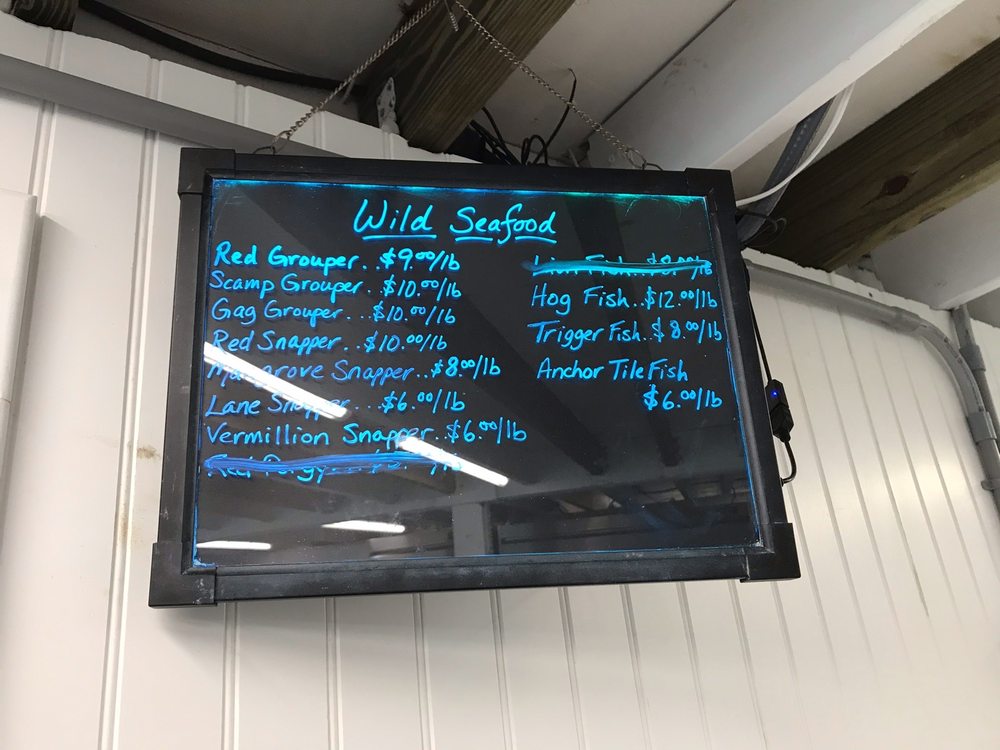 Wild Seafood
Red Grouper..$9.00/lb
Scamp Grouper..$10.00/lb
Gag Grouper...$10.00/lb
Red Snapper..$10.00/lb
Mangrove Snapper..$8.00/lb
Lane Snapper...$6.00/lb
Vermillion Snapper..$6.00/lb
Red Porgy
Lion Fish..$8.00/lb
Hog Fish..$12.00/lb
Trigger Fish..$8.00/lb
Anchor Tile Fish
$6.00/lb